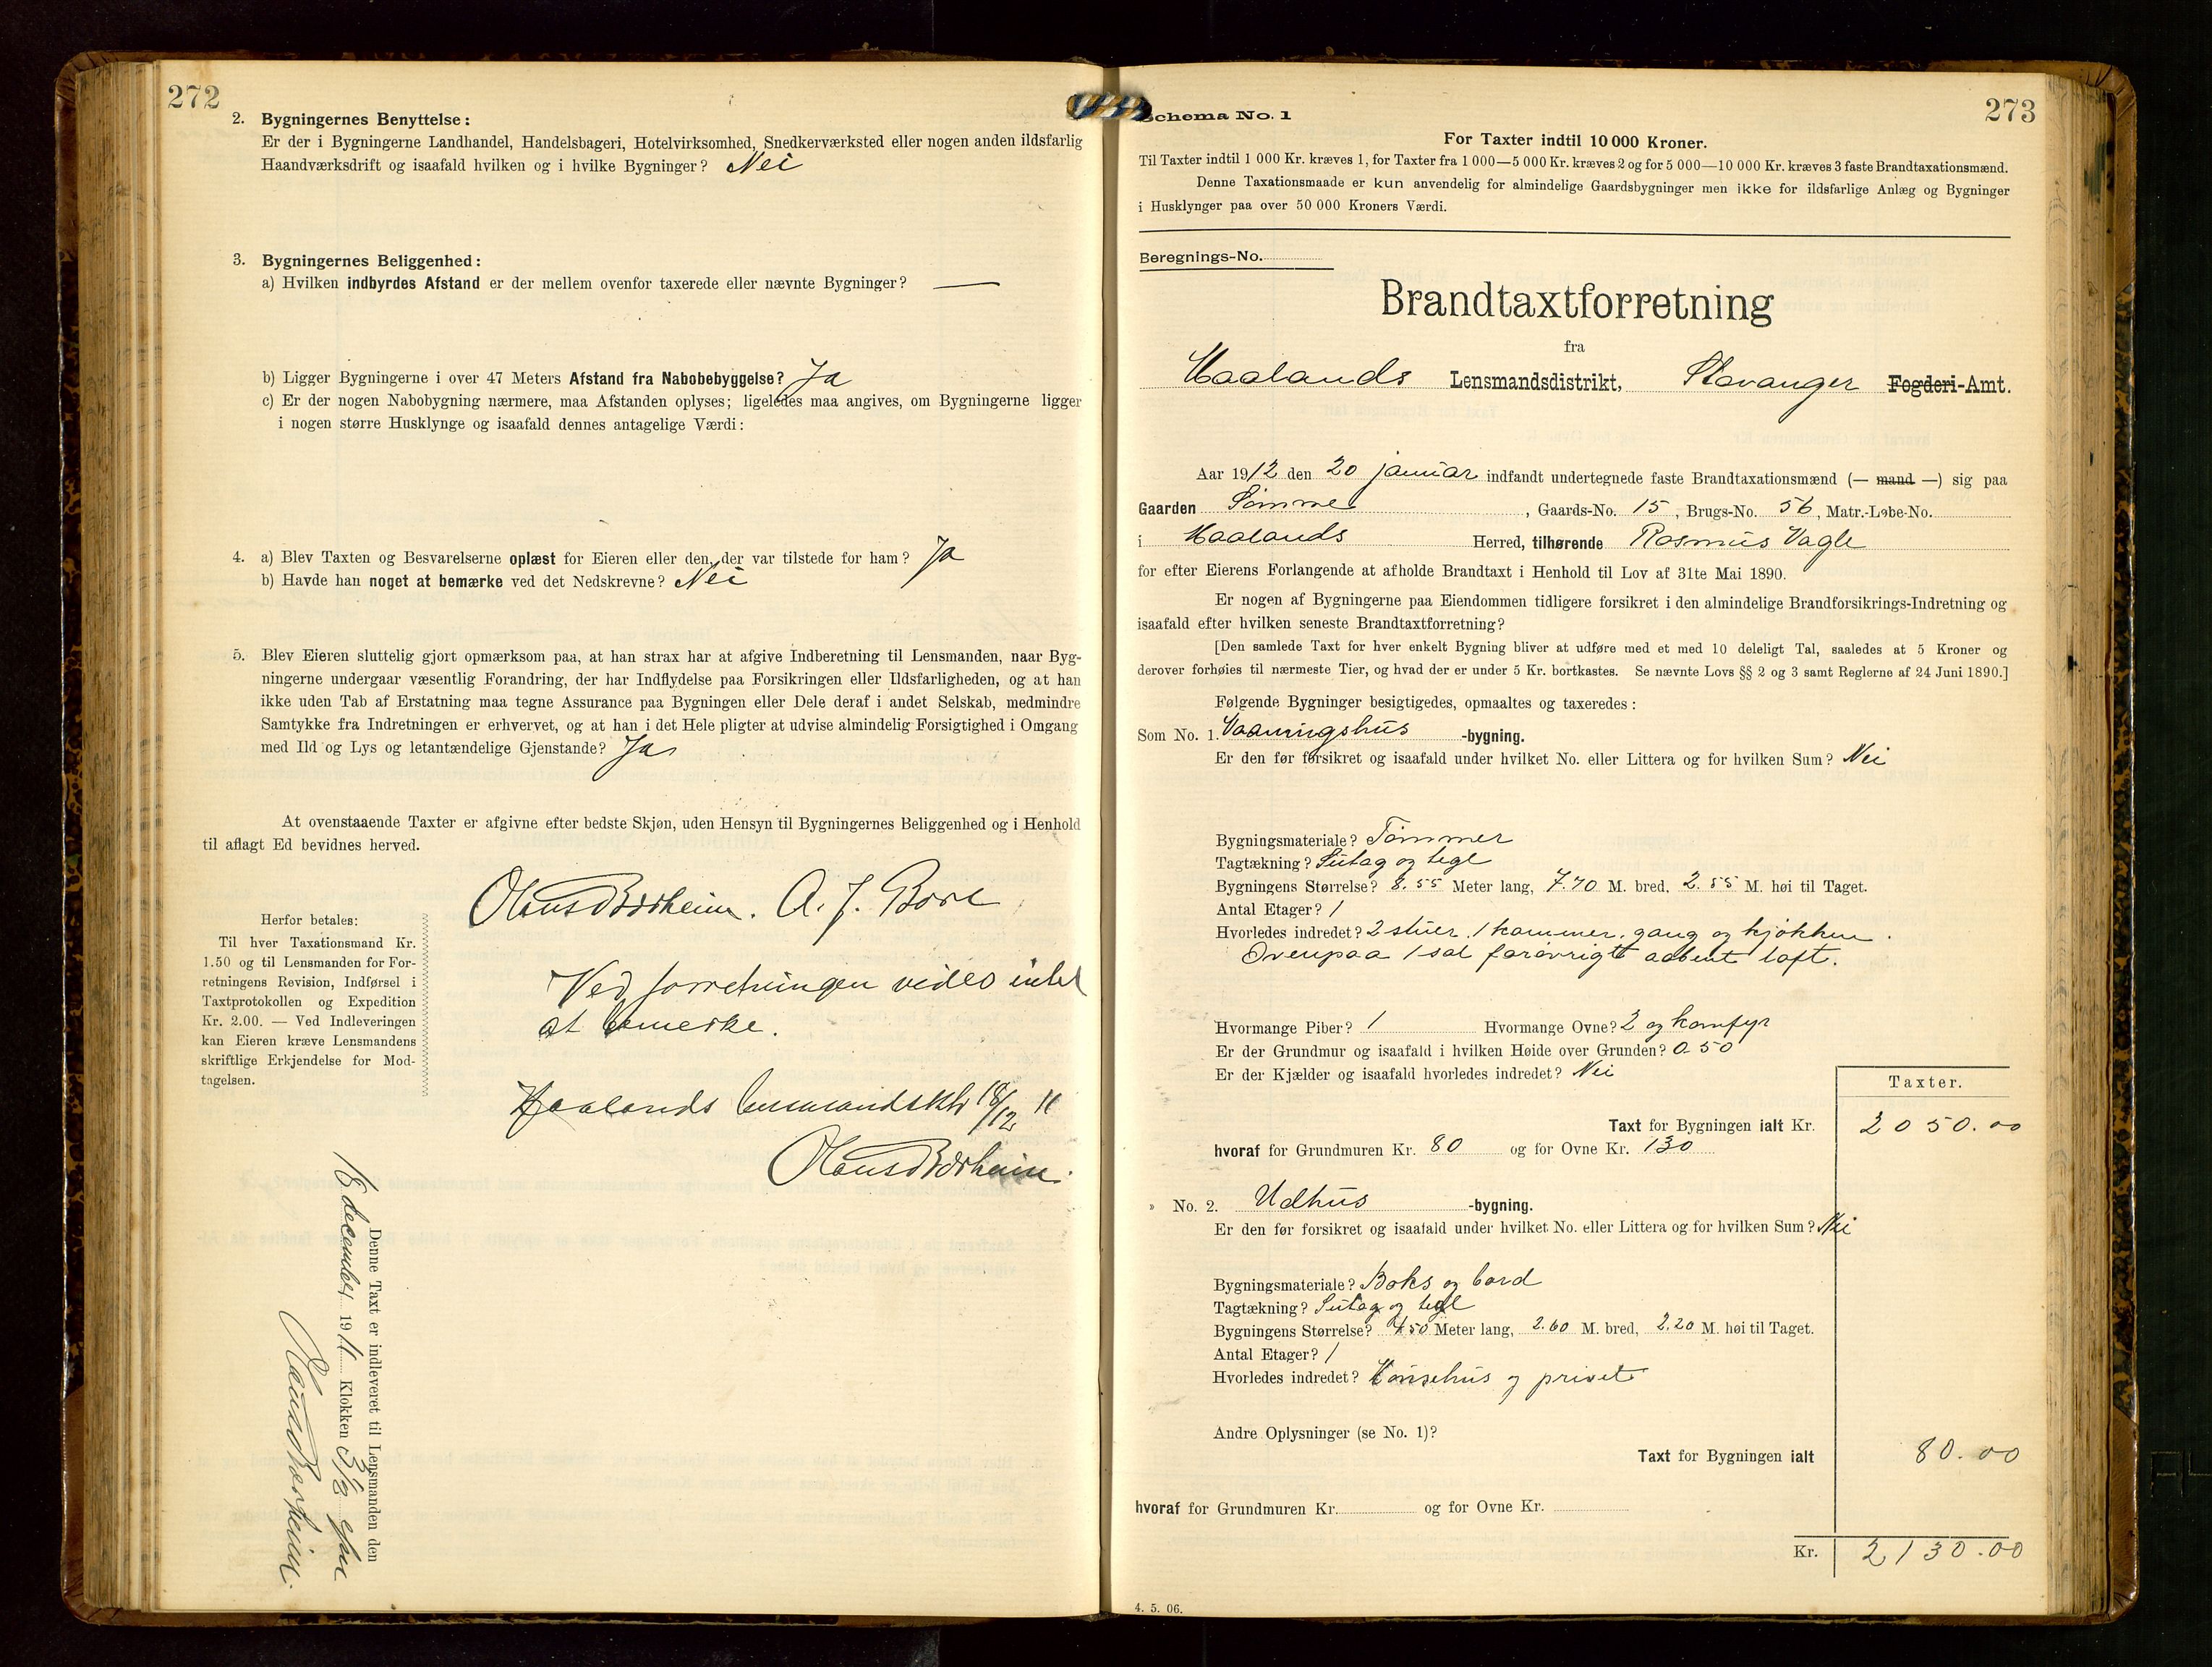 272
2. Bygningernes Benyttelse:
Er der i Bygningerne Landhandel, Handelsbageri, Hotelvirksomhed, Snedkerværksted eller nogen anden ildsfarlig
Haandværksdrift og isaafald hvilken og i hvilke Bygninger? Nei
3. Bygningernes Beliggenhed:
a) Hvilken indbyrdes Afstand er der mellem ovenfor taxerede eller nævnte Bygninger? —
b) Ligger Bygningerne i over 47 Meters Afstand fra Nabobebyggelse? Ja
c) Er der nogen Nabobygning nærmere, maa Afstanden oplyses; ligeledes maa angives, om Bygningerne ligger
i nogen større Husklynge og isaafald dennes antagelige Værdi:
4. a) Blev Taxten og Besvarelserne oplæst for Eieren eller den, der var tilstede for ham? Ja
b) Havde han noget at bemærke ved det Nedskrevne? Nei
5. Blev Eieren sluttelig gjort opmærksom paa, at han strax har at afgive Indberetning til Lensmanden, naar Byg-
ningerne undergaar væsentlig Forandring, der har Indflydelse paa Forsikringen eller Ildsfarligheden, og at han
ikke uden Tab af Erstatning maa tegne Assurance paa Bygningen eller Dele deraf i andet Selskab, medmindre
Samtykke fra Indretningen er erhvervet, og at han i det Hele pligter at udvise almindelig Forsigtighed i Omgang
med Ild og Lys og letantændelige Gjenstande? Ja
At ovenstaaende Taxter er afgivne efter bedste Skjøn, uden Hensyn til Bygningernes Beliggenhed og i Henhold
til aflagt Ed bevidnes herved.
Claus Bærheim. A. J. Bore
Herfor betales:
Til hver Taxationsmand Kr.
1.50 og til Lensmanden for For-
retningens Revision, Indførsel i
Taxtprotokollen og Expedition
Kr. 2.00. — Ved Indleveringen
kan Eieren kræve Lensmandens
skriftlige Erkjendelse for Mod-
tagelsen.
Ved forretningen vides intet
at bemerke.
Haalands lensmandsktr 18/12 11
Claus Bærheim.
Denne Taxt er indleveret til Lensmanden den
18 december 1911 Klokken 3 1/2 efm
Claus Bærheim.
273
Schema No. 1
For Taxter indtil 10 000 Kroner.
Til Taxter indtil 1 000 Kr. kræves 1, for Taxter fra 1 000—5 000 Kr. kræves 2 og for 5 000—10 000 Kr. kræves 3 faste Brandtaxationsmænd.
Denne Taxationsmaade er kun anvendelig for almindelige Gaardsbygninger men ikke for ildsfarlige Anlæg og Bygninger
i Husklynger paa over 50 000 Kroners Værdi.
Beregnings-No.
Brandtaxtforretning
fra
Haalands Lensmandsdistrikt, Stavanger Fogderi-Amt.
Aar 1912 den 20 januar indfandt undertegnede faste Brandtaxationsmænd (— mand —) sig paa
Gaarden Sømme, Gaards-No. 15, Brugs-No. 56, Matr.-Løbe-No.
i Haalands Herred, tilhørende Rasmus Vagle
for efter Eierens Forlangende at afholde Brandtaxt i Henhold til Lov af 31te Mai 1890.
Er nogen af Bygningerne paa Eiendommen tidligere forsikret i den almindelige Brandforsikrings-Indretning og
isaafald efter hvilken seneste Brandtaxtforretning?
[Den samlede Taxt for hver enkelt Bygning bliver at udføre med et med 10 deleligt Tal, saaledes at 5 Kroner og
derover forhøies til nærmeste Tier, og hvad der er under 5 Kr. bortkastes. Se nævnte Lovs §§ 2 og 3 samt Reglerne af 24 Juni 1890.]
Følgende Bygninger besigtigedes, opmaaltes og taxeredes:
Som No. 1. Vaaningshus -bygning.
Er den før forsikret og isaafald under hvilket No. eller Littera og for hvilken Sum? Nei
Bygningsmateriale? Tømmer
Tagtækning? Sutag og tegl
Bygningens Størrelse? 8.55 Meter lang, 7.70 M. bred, 2.55 M. høi til Taget.
Antal Etager? 1
Hvorledes indredet? 2 stuer, 1 kammer, gang og kjøkken.
Ovenpaa 1 sal forøvrigt aabent loft.
Hvormange Piber? 1 Hvormange Ovne? 2 og komfyr
Er der Grundmur og isaafald i hvilken Høide over Grunden? 0.50
Er der Kjælder og isaafald hvorledes indredet? Nei
Taxter.
Taxt for Bygningen ialt Kr. 2050.00
hvoraf for Grundmuren Kr. 80 og for Ovne Kr. 130
» No. 2. Udhus -bygning.
Er den før forsikret og isaafald under hvilket No. eller Littera og for hvilken Sum? Nei
Bygningsmateriale? Boks og bord
Tagtækning? Sutag og tegl
Bygningens Størrelse? 4.50 Meter lang, 2.60 M. bred, 2.20 M. høi til Taget.
Antal Etager? 1
Hvorledes indredet? Hønsehus og privet
Andre Oplysninger (se No. 1)?
Taxt for Bygningen ialt 80.00
hvoraf for Grundmuren Kr. og for Ovne Kr.
Kr. 2130.00
4. 5. 06.